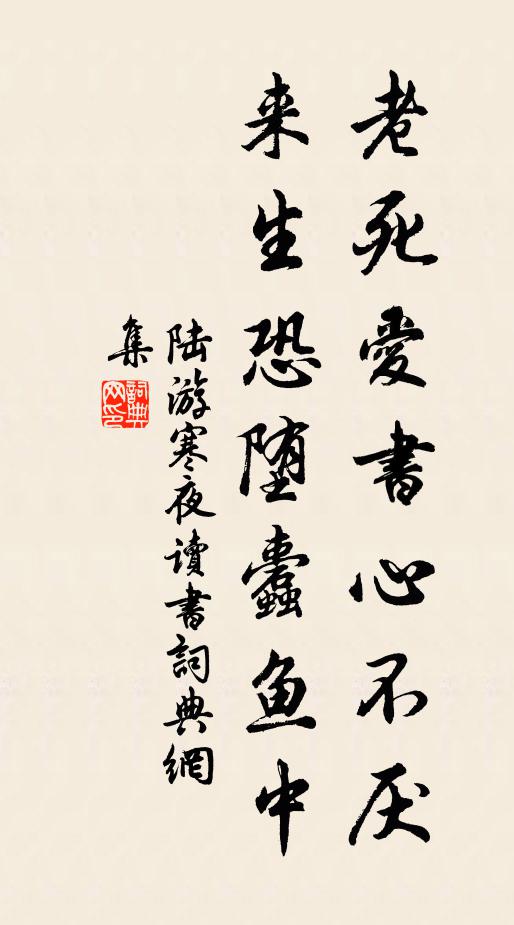 老死爱書心不厌
来生恐堕蠹鱼中
陆游寒夜读書詞典網
集
詞典网印